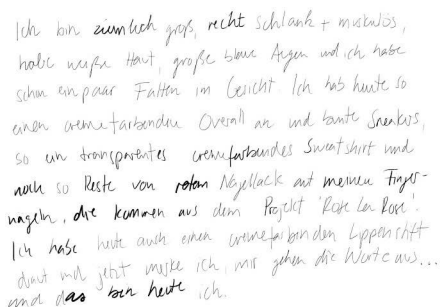 Ich bin ziemlich groß, recht schlank + muskulös,
habe weiße Haut, große blaue Augen und ich habe
schon ein paar Falten im Gesicht. Ich hab heute so
einen cremefarbenden Overall an und bunte Sneakers,
so ein transparentes cremefarbendes Sweatshirt und
noch so Reste von rotem Nagellack auf meinen Finger-
nägeln, die kommen aus dem Projekt 'Rose Rose'.
Ich habe heute auch einen cremefarbenden Lippenstift
drauf und jetzt merke ich, mir gehen die Worte aus...
und das bin heute ich.